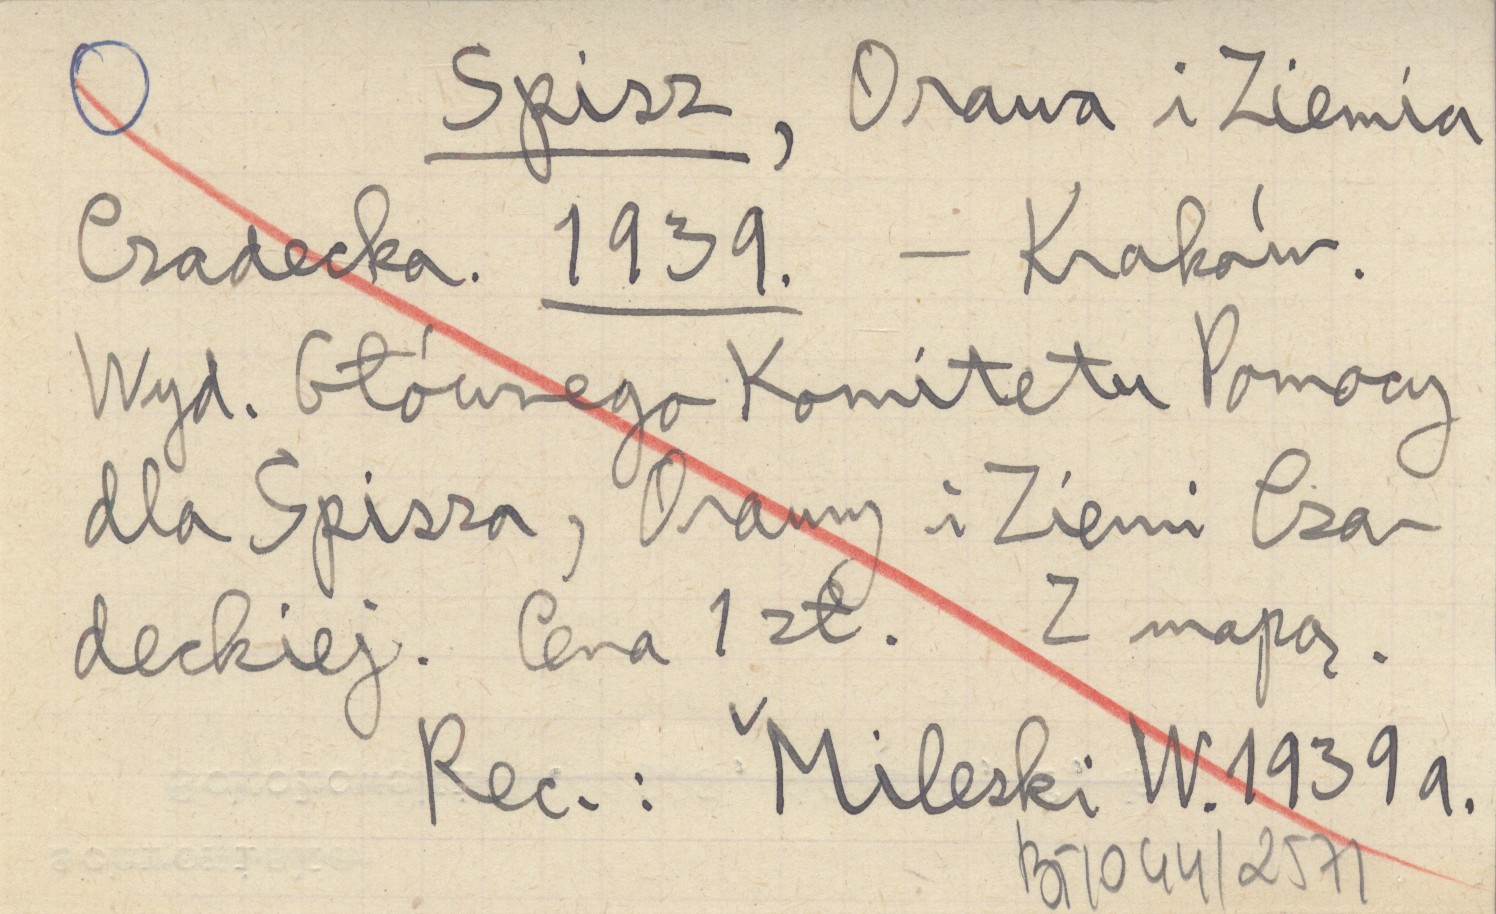 Spisz, Orawa i Ziemia
Czadecka. 1939. — Kraków.
Wyd. Głównego Komitetu Pomocy
dla Spisza, Orawy i Ziemi Cza-
deckiej. Cena 1 zł. Z mapą.
Rec.: Mileski W. 1939 a.
BT/044/2571